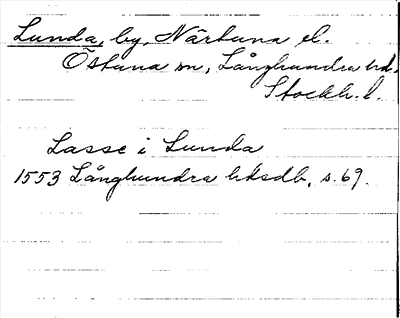 Lunda, by, Närtuna el.
Östuna sn, Långhundra hd.
Stockh. l.
Lasse i Lunda
1553 Långhundra hdsdb. s. 69.